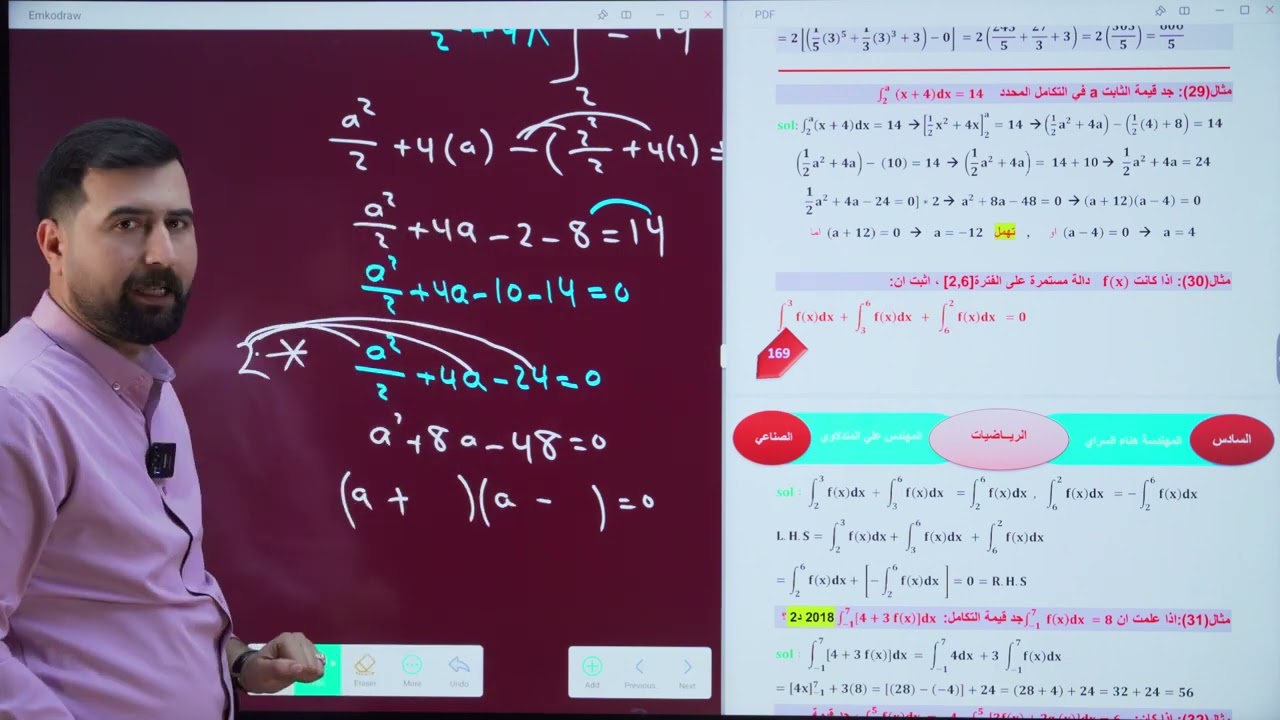 Emkodraw
2
a²/2 + 4(a) - (2²/2 + 4(2)) =
a²/2 + 4a - 2 - 8 = 14
a²/2 + 4a - 10 - 14 = 0
2 * a²/2 + 4a - 24 = 0
a² + 8a - 48 = 0
(a + )(a - ) = 0
Eraser More Undo
Add Previous Next
PDF
= 2[(1/5(3)⁵ + 1/3(3)³ + 3) − 0] = 2(243/5 + 27/3 + 3) = 2(303/5) = 606/5
مثال(29): جد قيمة الثابت a في التكامل المحدد ∫₂ᵃ (x + 4)dx = 14
sol: ∫₂ᵃ(x + 4)dx = 14 → [1/2 x² + 4x]₂ᵃ = 14 → (1/2 a² + 4a) − (1/2 (4) + 8) = 14
(1/2 a² + 4a) − (10) = 14 → (1/2 a² + 4a) = 14 + 10 → 1/2 a² + 4a = 24
1/2 a² + 4a − 24 = 0] * 2 → a² + 8a − 48 = 0 → (a + 12)(a − 4) = 0
اما (a + 12) = 0 → a = −12 تهمل , او (a − 4) = 0 → a = 4
مثال(30): اذا كانت f(x) دالة مستمرة على الفترة[2,6] ، اثبت ان:
∫³ f(x)dx + ∫₃⁶ f(x)dx + ∫₆² f(x)dx = 0
169
السادس المهندسة هناء السراي الرياضيات المهندس علي المندلاوي الصناعي
sol : ∫₂³ f(x)dx + ∫₃⁶ f(x)dx = ∫₂⁶ f(x)dx , ∫₆² f(x)dx = −∫₂⁶ f(x)dx
L.H.S = ∫₂³ f(x)dx + ∫₃⁶ f(x)dx + ∫₆² f(x)dx
= ∫₂⁶ f(x)dx + [−∫₂⁶ f(x)dx] = 0 = R.H.S
مثال(31):اذا علمت ان ∫₋₁⁷ f(x)dx = 8 جد قيمة التكامل: ∫₋₁⁷[4 + 3 f(x)]dx 2018 د2 ؟
sol : ∫₋₁⁷[4 + 3f(x)]dx = ∫₋₁⁷ 4dx + 3 ∫₋₁⁷ f(x)dx
= [4x]⁷₋₁ + 3(8) = [(28) − (−4)] + 24 = (28 + 4) + 24 = 32 + 24 = 56